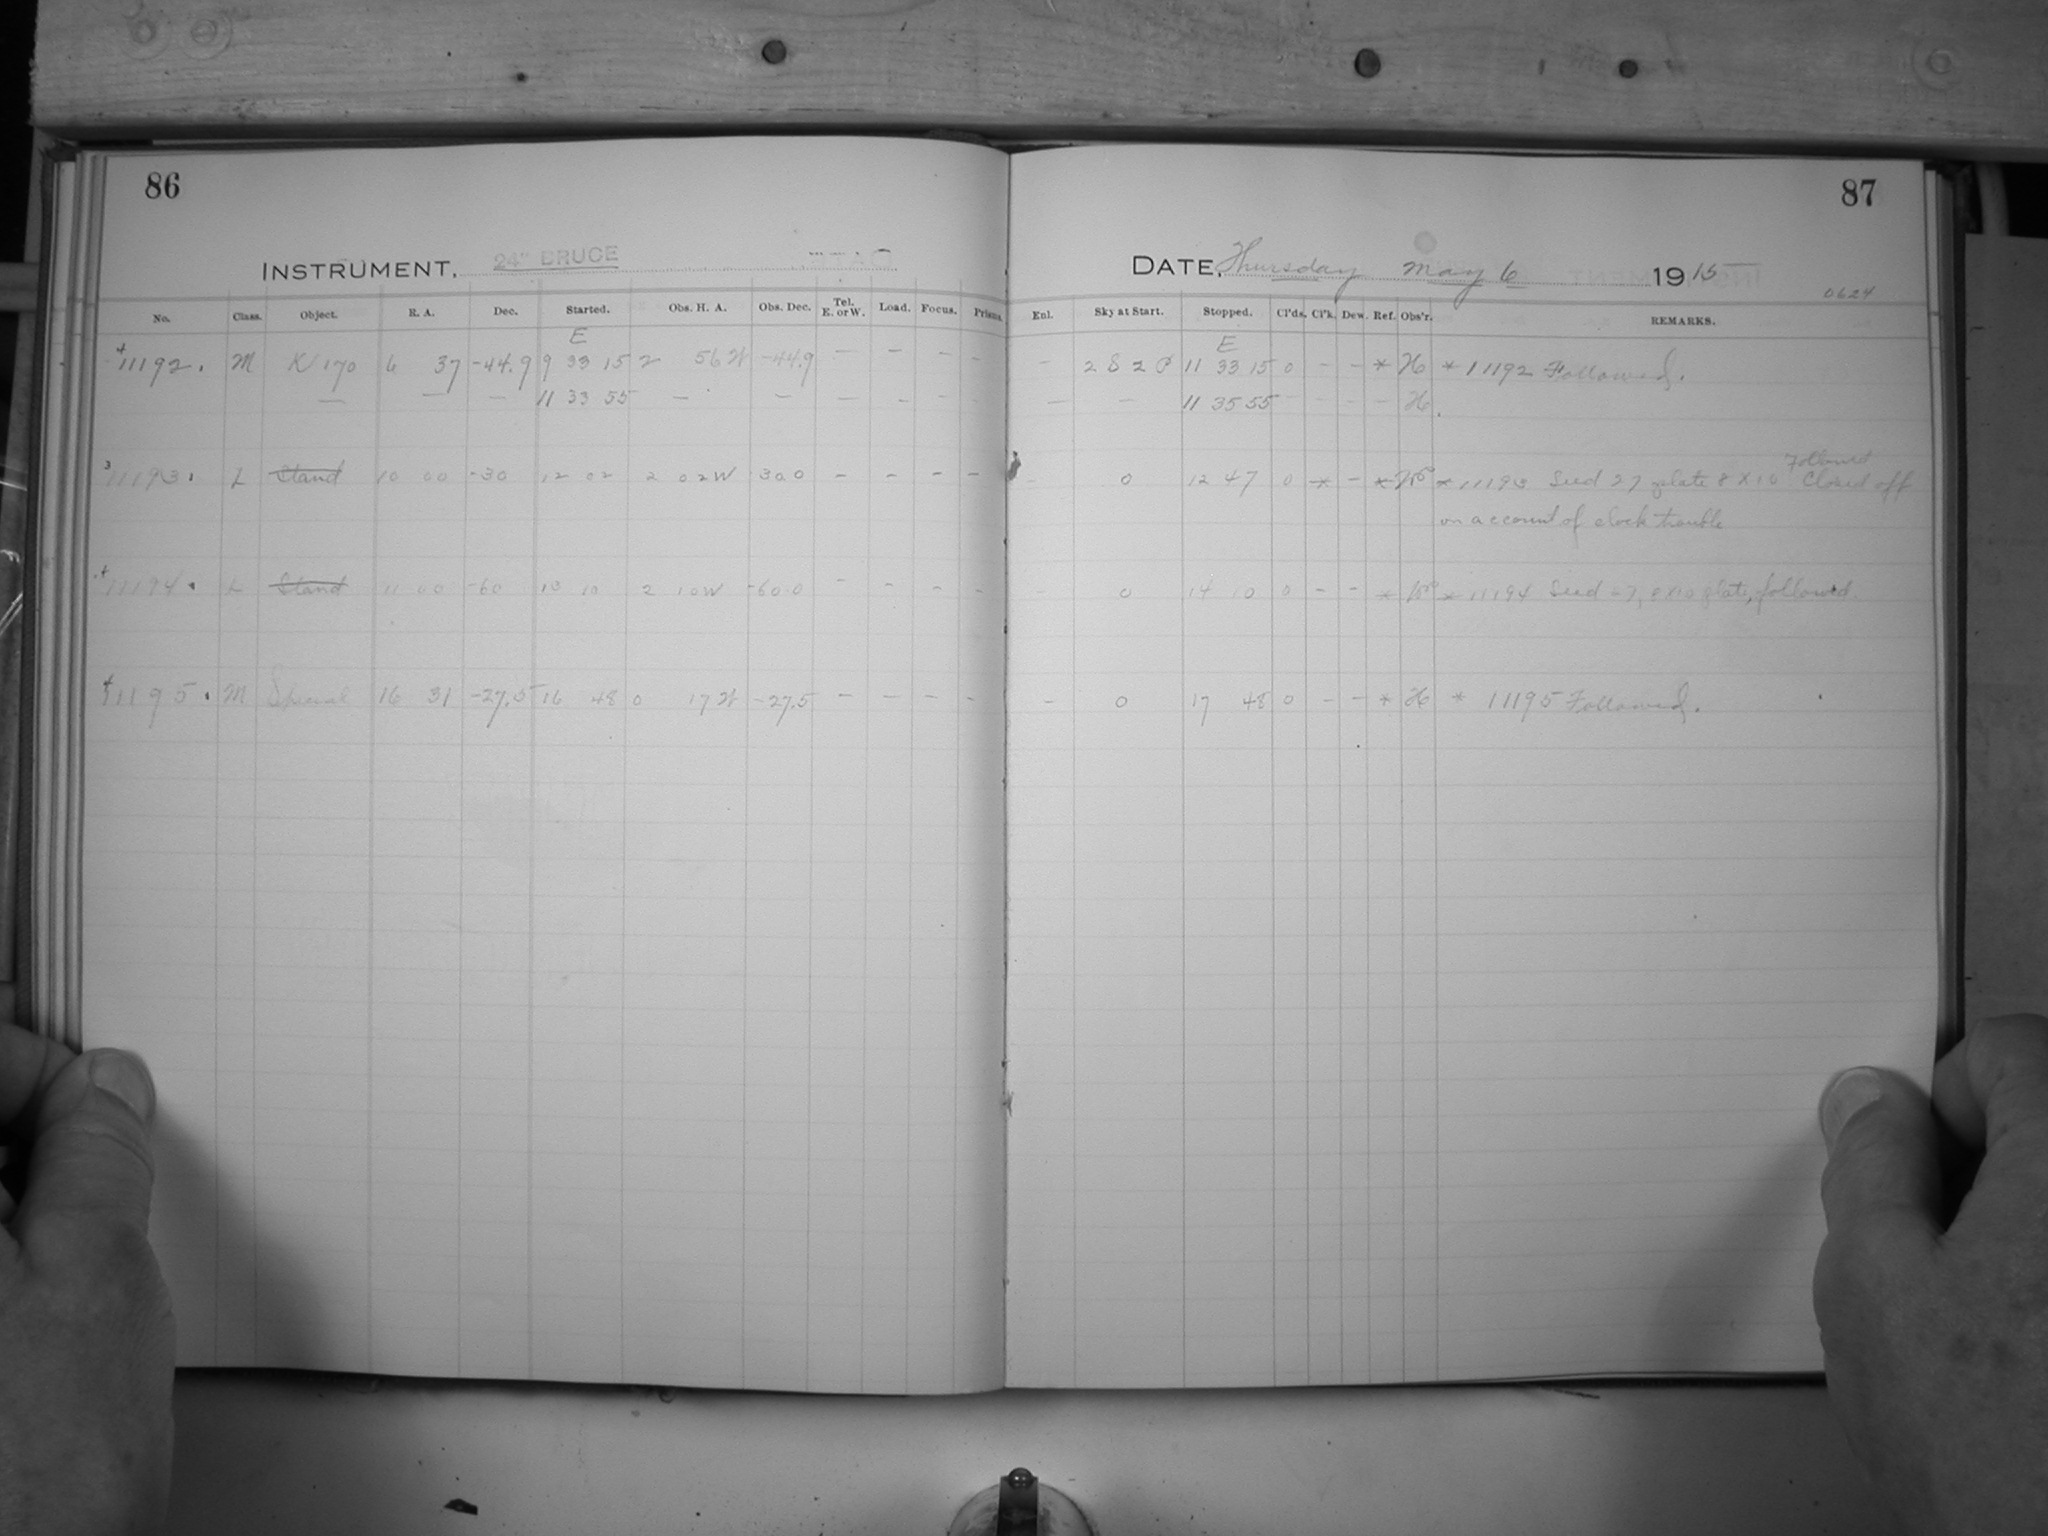 86
INSTRUMENT, 24" BRUCE
No. Class. Object. R. A. Dec. Started. Obs. H. A. Obs. Dec. Tel. E. or W. Load. Focus. Prisms.
E
4 11192. M K 170 6 37 -44.9 9 33 15 2 56 W -44.9 — — — —
— — — 11 33 55 — — — — — —
3 11193. L Stand 10 00 -30 12 02 2 02 W -30.0 — — — —
4 11194. L Stand 11 00 -60 13 10 2 10 W -60.0 — — — —
4 11195. M Special 16 31 -27.5 16 48 0 17 W -27.5 — — — —
87
DATE, Thursday May 6 1915
0624
Enl. Sky at Start. Stopped. Cl'ds. Cl'k. Dew. Ref. Obs'r. REMARKS.
E
— 2 S 2 P 11 33 15 0 — — * H * 11192 Followed.
— — 11 35 55 — — — — H.
Followed
— 0 12 47 0 * — * * 11193 Seed 27 plate 8 X 10 Closed off
on account of clock trouble
— 0 14 10 0 — — * * 11194 Seed 27, 8X10 plate, followed.
— 0 17 48 0 — — * H * 11195 Followed.